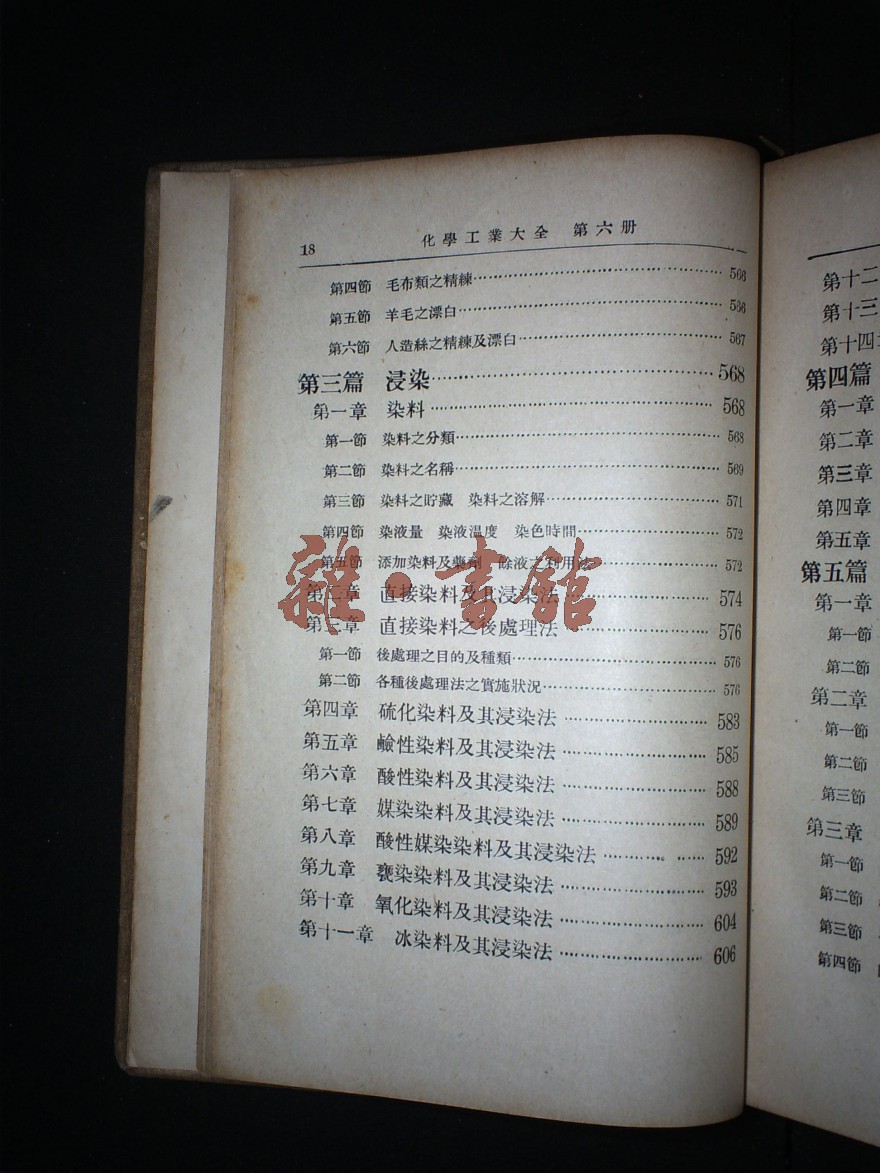 18 化學工業大全 第六册
第四節 毛布類之精練 566
第五節 羊毛之漂白 566
第六節 人造絲之精練及漂白 567
第三篇 浸染 568
第一章 染料 568
第一節 染料之分類 568
第二節 染料之名稱 569
第三節 染料之貯藏 染料之溶解 571
第四節 染液量 染液温度 染色時間 572
第五節 添加染料及藥劑 餘液之利用法 572
第二章 直接染料及其浸染法 574
第三章 直接染料之後處理法 576
第一節 後處理之目的及種類 576
第二節 各種後處理法之實施狀況 576
第四章 硫化染料及其浸染法 583
第五章 鹼性染料及其浸染法 585
第六章 酸性染料及其浸染法 588
第七章 媒染染料及其浸染法 589
第八章 酸性媒染染料及其浸染法 592
第九章 甕染染料及其浸染法 593
第十章 氧化染料及其浸染法 604
第十一章 冰染料及其浸染法 606
雜·書館
第十二
第十三
第十四
第四篇
第一章
第二章
第三章
第四章
第五章
第五篇
第一章
第一節
第二節
第二章
第一節
第二節
第三節
第三章
第一節
第二節
第三節
第四節